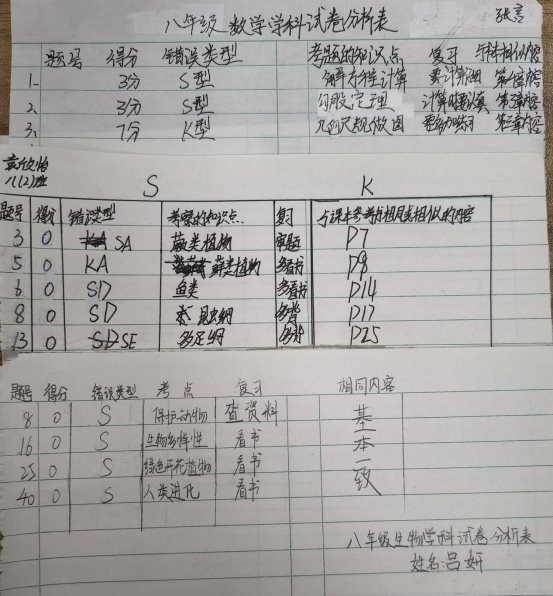 八年级 数学学科试卷分析表 张言
题号 得分 错误类型 考题的知识点 复习 书本相似内容
1. 3分 S型 解方程计算 要计算细
2. 3分 S型 勾股定理 计算要认真
3. 7分 K型 几何尺规做图 要多加练习 第三章内容
袁欣怡
八(2)班
S K
题号 得分 错误类型 考察的知识点 复习 与课本考考点相同或相似的内容
3 0 SA 蕨类植物 审题 P7
5 0 KA 藓类植物 多看书 P9
6 0 SD 鱼类 多看书 P14
8 0 SD 昆虫纲 多背 P17
13 0 SE 多足纲 多背 P25
题号 得分 错误类型 考点 复习 相同内容
8 0 S 保护动物 查资料 基
16 0 S 生物多样性 看书 本
25 0 S 绿色开花植物 看书 一
40 0 S 人类进化 看书 致
八年级生物学科试卷分析表
姓名:吕妍